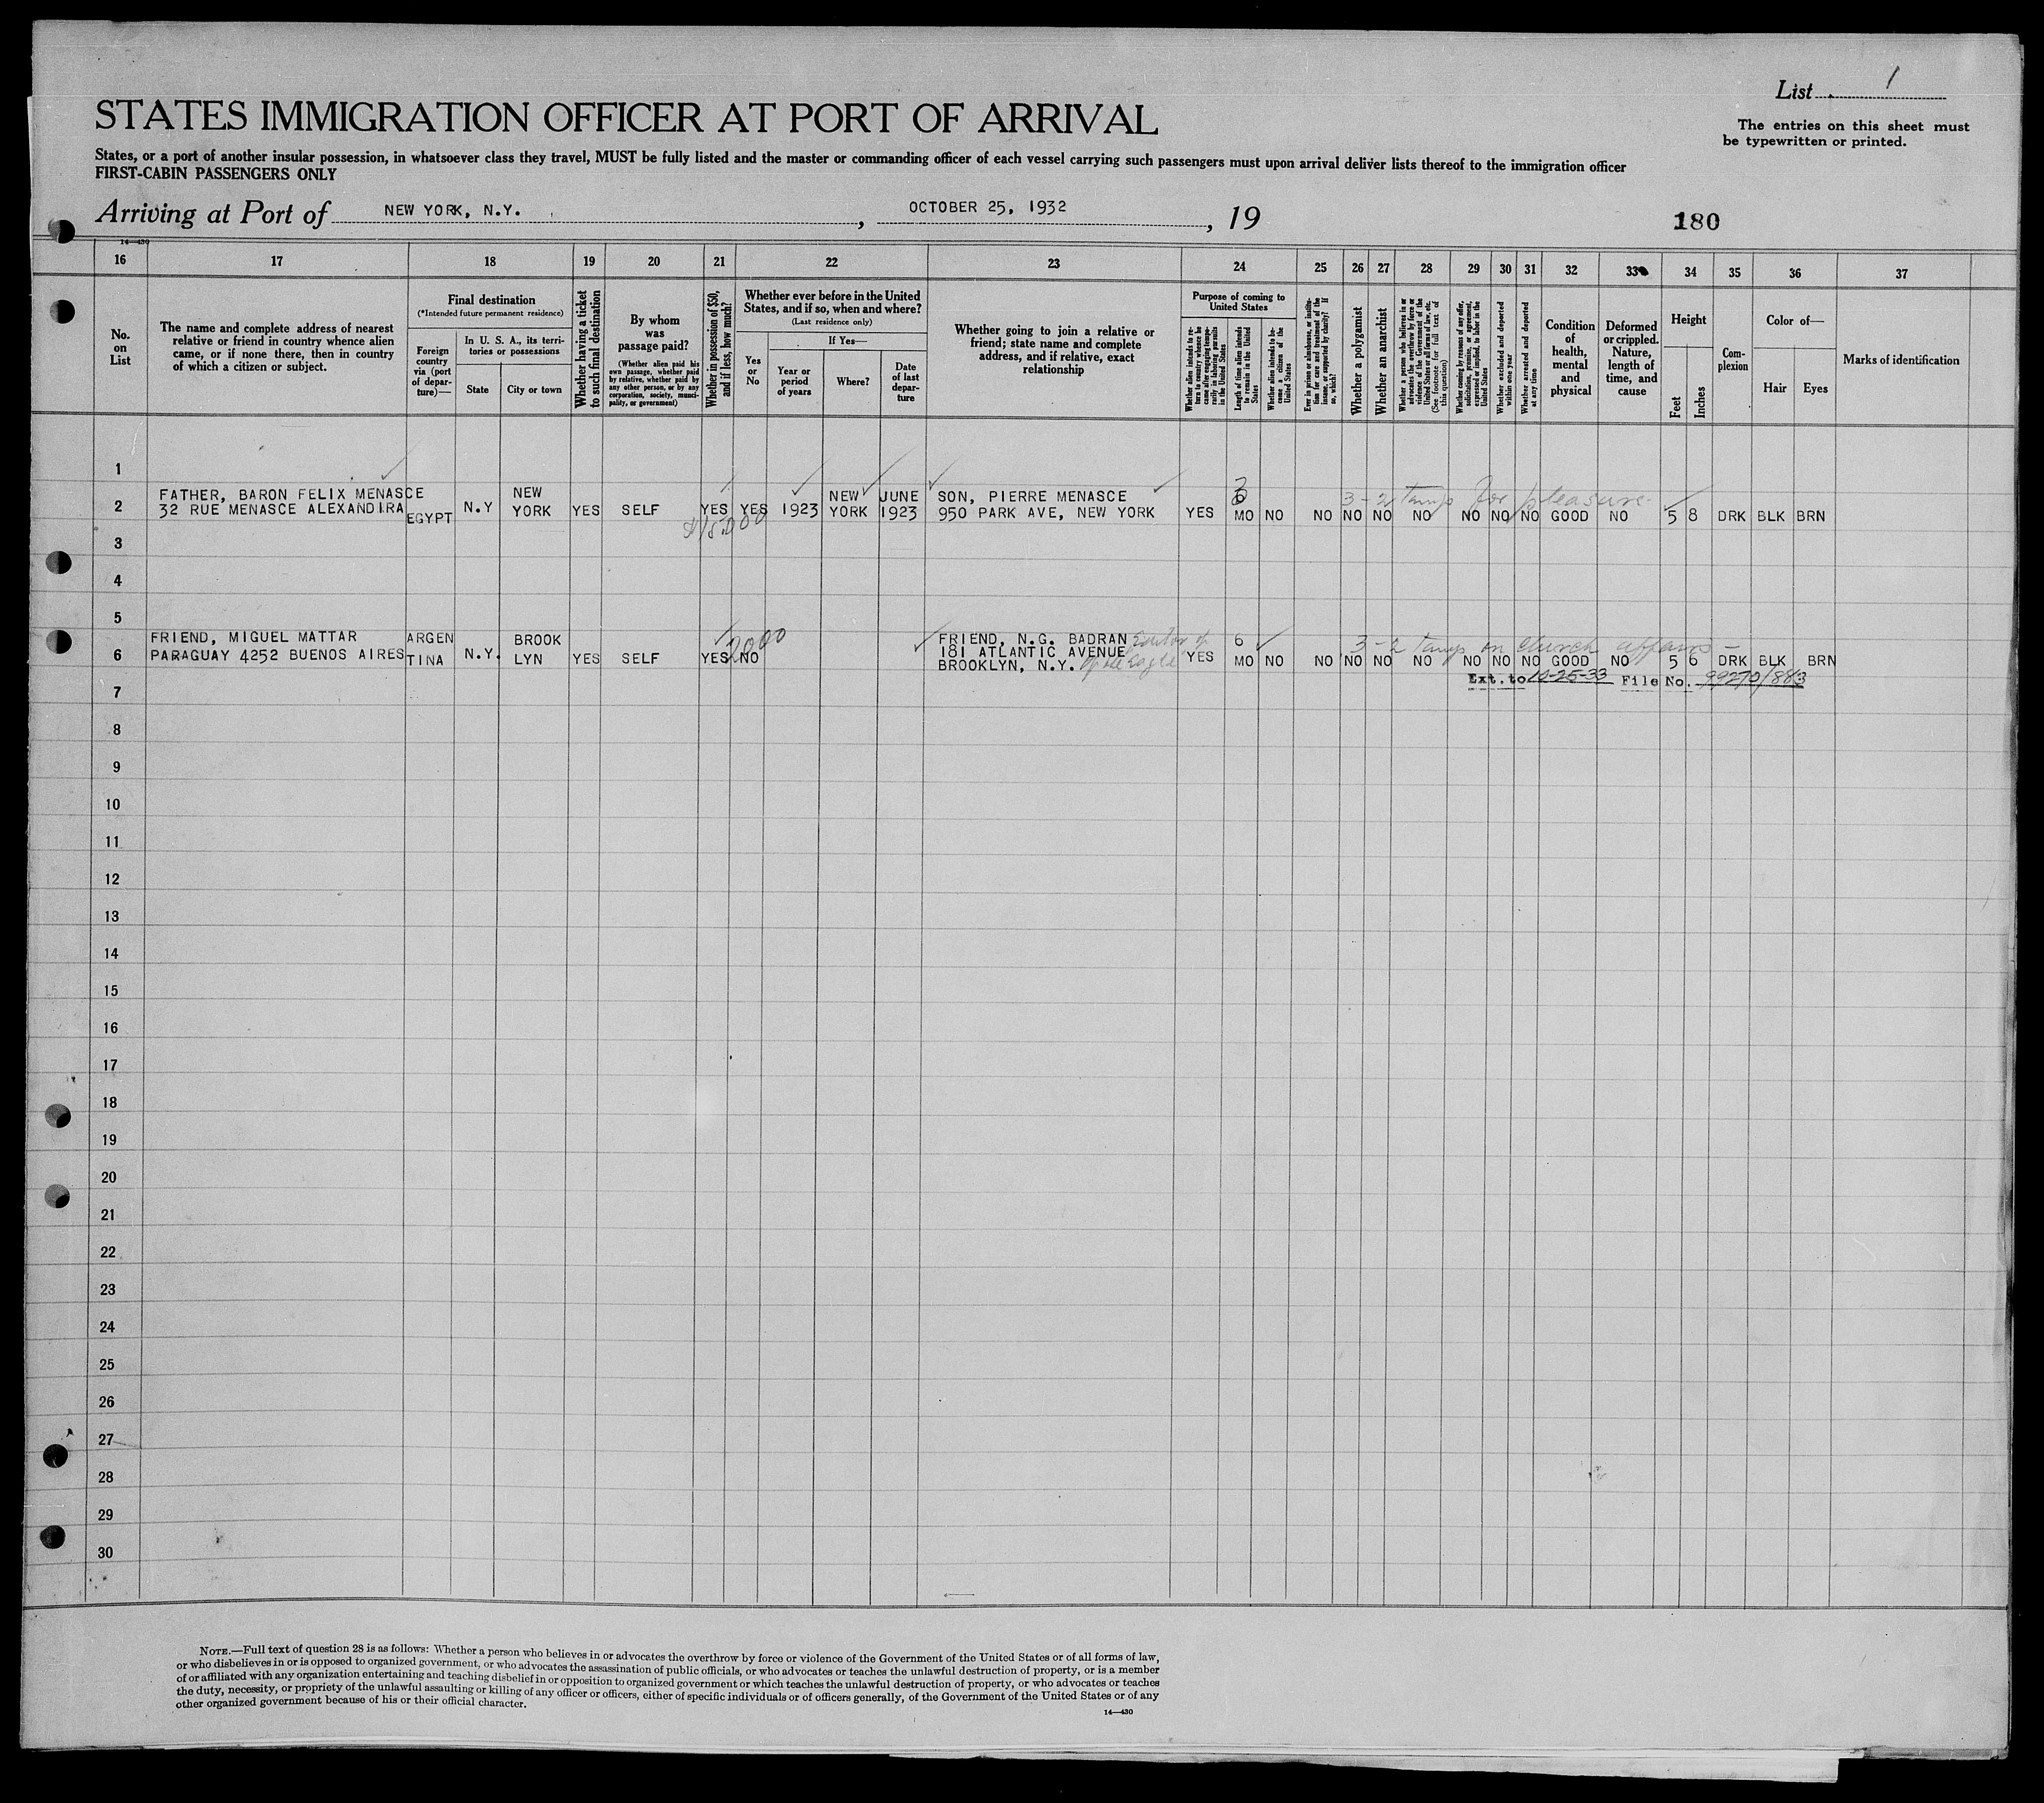 List 1
The entries on this sheet must
be typewritten or printed.
STATES IMMIGRATION OFFICER AT PORT OF ARRIVAL
States, or a port of another insular possession, in whatsoever class they travel, MUST be fully listed and the master or commanding officer of each vessel carrying such passengers must upon arrival deliver lists thereof to the immigration officer
FIRST-CABIN PASSENGERS ONLY
Arriving at Port of NEW YORK, N.Y. , OCTOBER 25, 1932 , 19 180
14—430
16 17 18 19 20 21 22 23 24 25 26 27 28 29 30 31 32 33 34 35 36 37
No.
on
List
The name and complete address of nearest
relative or friend in country whence alien
came, or if none there, then in country
of which a citizen or subject.
Final destination
(*Intended future permanent residence)
Foreign
country
via (port
of depar-
ture)—
In U. S. A., its terri-
tories or possessions
State
City or town
Whether having a ticket
to such final destination
By whom
was
passage paid?
(Whether alien paid his
own passage, whether paid
by relative, whether paid by
any other person, or by any
corporation, society, munici-
pality, or government)
Whether in possession of $50,
and if less, how much?
Whether ever before in the United
States, and if so, when and where?
(Last residence only)
Yes
or
No
If Yes—
Year or
period
of years
Where?
Date
of last
depar-
ture
Whether going to join a relative or
friend; state name and complete
address, and if relative, exact
relationship
Purpose of coming to
United States
Whether alien intends to re-
turn to country whence he
came after engaging tempo-
rarily in laboring pursuits
in the United States
Length of time alien intends
to remain in the United
States
Whether alien intends to be-
come a citizen of the
United States
Ever in prison or almshouse, or institu-
tion for care and treatment of the
insane, or supported by charity? If
so, which?
Whether a polygamist
Whether an anarchist
Whether a person who believes in or
advocates the overthrow by force or
violence of the Government of the
United States or all forms of law, etc.
(See footnote for full text of
this question)
Whether coming by reason of any offer,
solicitation, promise, or agreement,
expressed or implied, to labor in the
United States
Whether excluded and deported
within one year
Whether arrested and deported
at any time
Condition
of
health,
mental
and
physical
Deformed
or crippled.
Nature,
length of
time, and
cause
Height
Feet
Inches
Com-
plexion
Color of—
Hair
Eyes
Marks of identification
1
FATHER, BARON FELIX MENASCE NEW NEW JUNE SON, PIERRE MENASCE 3 3-2 temp for pleasure
2 32 RUE MENASCE ALEXANDIRA EGYPT N.Y YORK YES SELF YES YES 1923 YORK 1923 950 PARK AVE, NEW YORK YES MO NO NO NO NO NO NO NO NO GOOD NO 5 8 DRK BLK BRN
3
4
5
FRIEND, MIGUEL MATTAR ARGEN BROOK 2000 FRIEND, N.G. BADRAN Editor of 6 3-2 temp on church affairs—
6 PARAGUAY 4252 BUENOS AIRES TINA N.Y. LYN YES SELF YES NO 181 ATLANTIC AVENUE YES MO NO NO NO NO NO NO NO NO GOOD NO 5 6 DRK BLK BRN
BROOKLYN, N.Y. Eagle
7 Ext. to 10-25-33 File No. 99270/883
8
9
10
11
12
13
14
15
16
17
18
19
20
21
22
23
24
25
26
27
28
29
30
NOTE.—Full text of question 28 is as follows: Whether a person who believes in or advocates the overthrow by force or violence of the Government of the United States or of all forms of law,
or who disbelieves in or is opposed to organized government, or who advocates the assassination of public officials, or who advocates or teaches the unlawful destruction of property, or is a member
of or affiliated with any organization entertaining and teaching disbelief in or opposition to organized government or which teaches the unlawful destruction of property, or who advocates or teaches
the duty, necessity, or propriety of the unlawful assaulting or killing of any officer or officers, either of specific individuals or of officers generally, of the Government of the United States or of any
other organized government because of his or their official character.
14—430